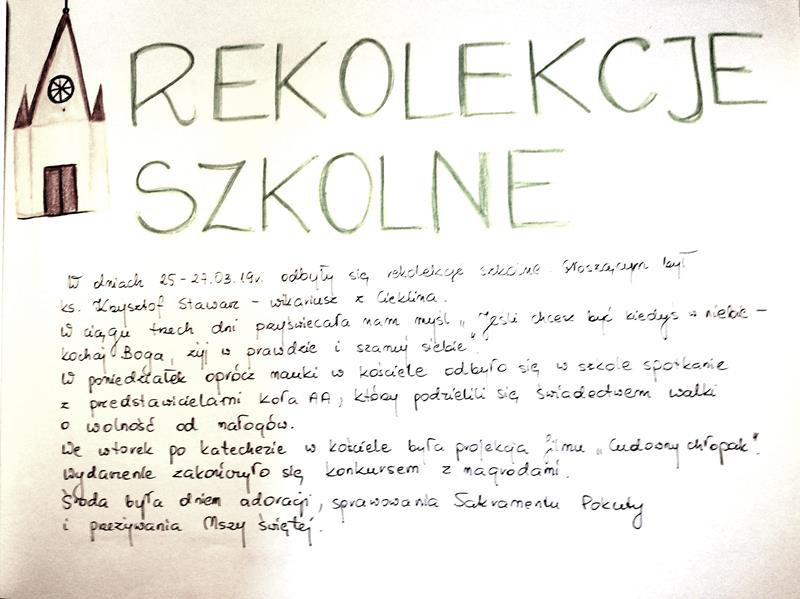 REKOLEKCJE
SZKOLNE
W dniach 25-27.03.19r. odbyły się rekolekcje szkolne. Głoszącym był
ks. Krzysztof Stawarz - wikariusz z Cieklina.
W ciągu trzech dni przyświecała nam myśl „Jeśli chcesz być kiedyś w niebie -
kochaj Boga, żyj w prawdzie i szanuj siebie".
W poniedziałek oprócz nauki w kościele odbyło się w szkole spotkanie
z przedstawicielami koła AA, który podzielili się świadectwem walki
o wolność od nałogów.
We wtorek po katechezie w kościele była projekcja filmu „Cudowny chłopak".
Wydarzenie zakończyło się konkursem z nagrodami.
Środa była dniem adoracji, sprawowania Sakramentu Pokuty
i przeżywania Mszy Świętej.